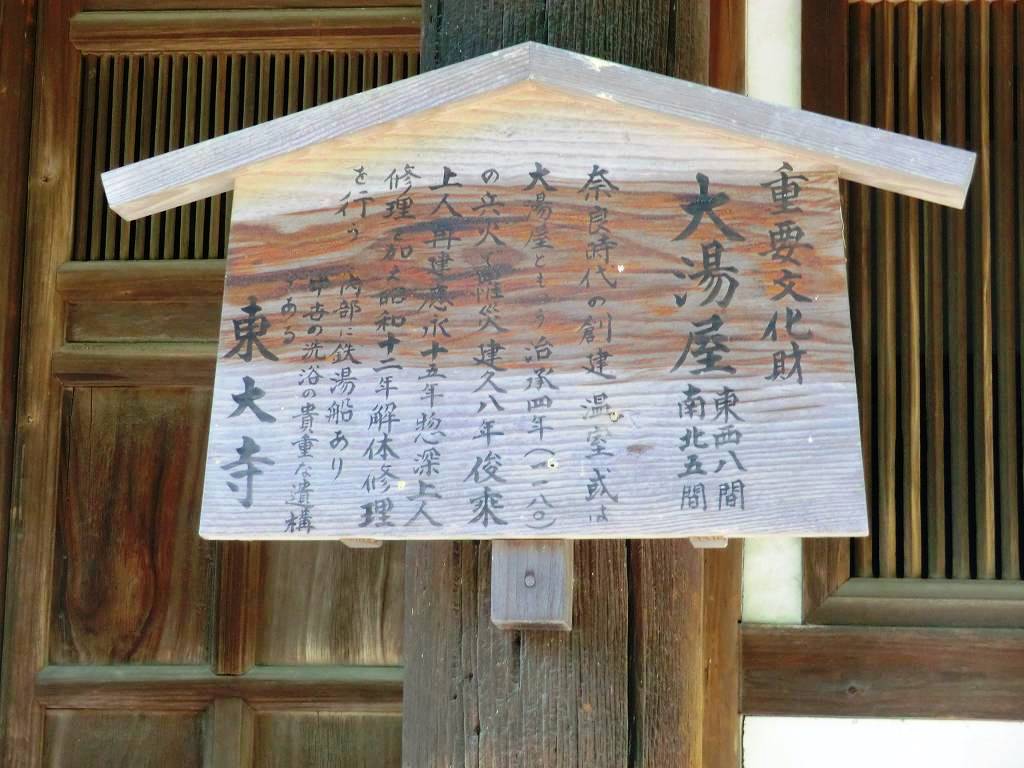 重要文化財
大湯屋
東西八間
南北五間
奈良時代の創建 温室或は
大湯屋ともいう 治承四年(一一八〇)
の兵火で罹災 建久八年俊乘
上人再建應永十五年惣深上人
修理を加え昭和十二年解体修理
を行う 内部に鉄湯船あり
中世の洗浴の貴重な遺構
である
東大寺